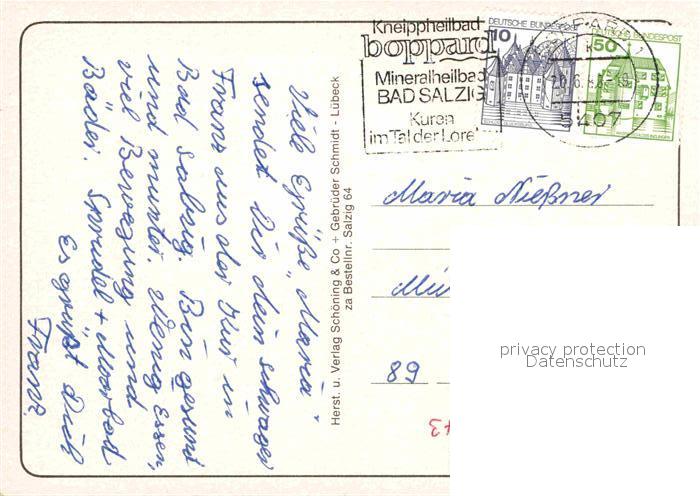 Kneippheilbad
boppard
Mineralheilbad
BAD SALZIG
Kuren
im Tal der Lorel
DEUTSCHE BUNDESPOST
10
DEUTSCHE BUNDESPOST
50
5407
Viele Grüße, Maria
sendet Dir dein Schwager
Franz aus der Kur in
Bad Salzig. Bin gesund
und munter. Wenig Essen,
viel Bewegung und
Bäder. Sprudel + Moorbad
Es grüßt Dich
Franz
Herst. u. Verlag Schöning & Co + Gebrüder Schmidt - Lübeck
za Bestellnr. Salzig 64
Maria Nießner
89
privacy protection
Datenschutz